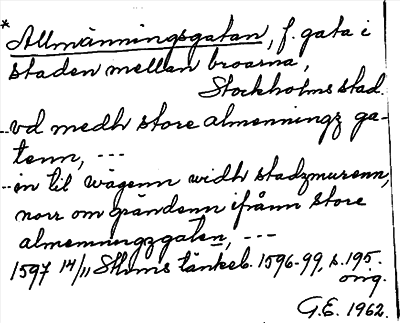 * Allmänningsgatan, f. gata i
staden mellan broarna,
Stockholms stad.
--vd medh store almenningz ga-
tenn, ---
--in til wägenn widh stadzmurenn,
norr om gränden ifrånn store
almenningzgaten, ---
1597 14/11 Sthlms tänkeb. 1596-99, s. 195.
orig.
G.E. 1962.